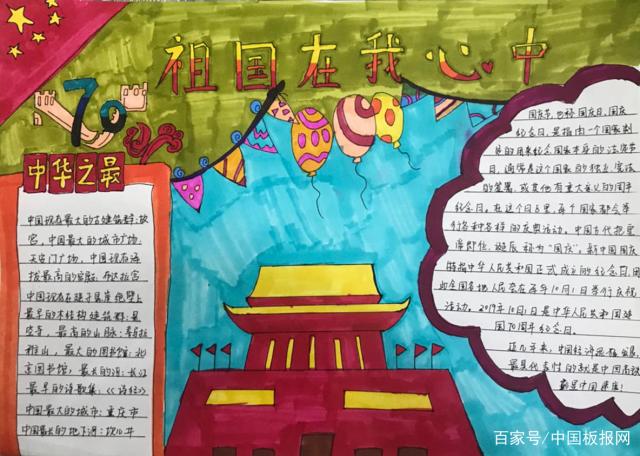 祖国在我心中
70
中华之最
中国现存最大的古建筑群:故
宫,中国最大的城市广场:
天安门广场,中国现存海
拔最高的宫殿:布达拉宫
中国现存在建于悬崖绝壁上
最早的木结构建筑群:悬
空寺,最高的山脉:喜马拉
雅山,最大的图书馆:北
京图书馆,最长的河:长江
最早的诗歌集:《诗经》
中国最大的城市:重庆市
中国最长的地下河:坎儿井
国庆节,也称国庆日,国庆
纪念日,是指由一个国家制
定的用来纪念国家本身的法定节
日,通常是这个国家的独立、宪法
的签署,或其他有重大意义的周年
纪念日。在这个日子里,每个国家都会举
行各种各样的庆祝活动。中国古代把皇
帝即位、诞辰称为“国庆”。新中国国庆
特指中华人民共和国正式成立的纪念日,因
此全国各地人民会在每年10月1日举行庆祝
活动。2019年10月1日是中华人民共和国建
国70周年纪念日。
近几年来,中国经济
最具代表性的就是中国高铁
百家号/中国板报网